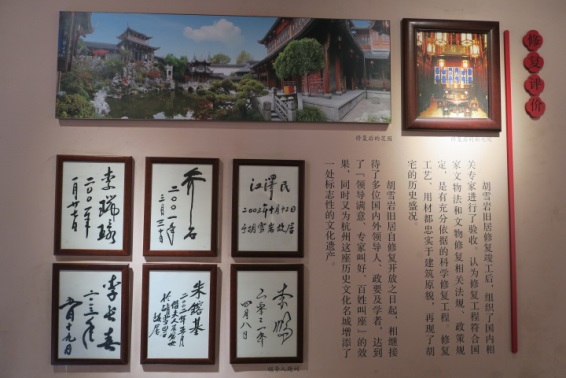 修复评价
胡雪岩旧居修复竣工后，组织了国内相
关专家进行了验收，认为修复工程符合国
家文物法和文物修复相关法规、政策规
定，是有充分依据的科学修复工程。修复
工艺、用材都忠实于建筑原貌，再现了胡
宅的历史盛况。
胡雪岩旧居自修复开放之日起，相继接
待了多位国内外领导人、政要及学者，达到
了“领导满意，专家叫好，百姓叫座”的效
果，同时又为杭州这座历史文化名城增添了
一处标志性的文化遗产。
修复后的花园
江泽民
于胡雪岩故居
乔石
李瑞环
李鹏
四月八日
朱镕基
李长春
六月十九日